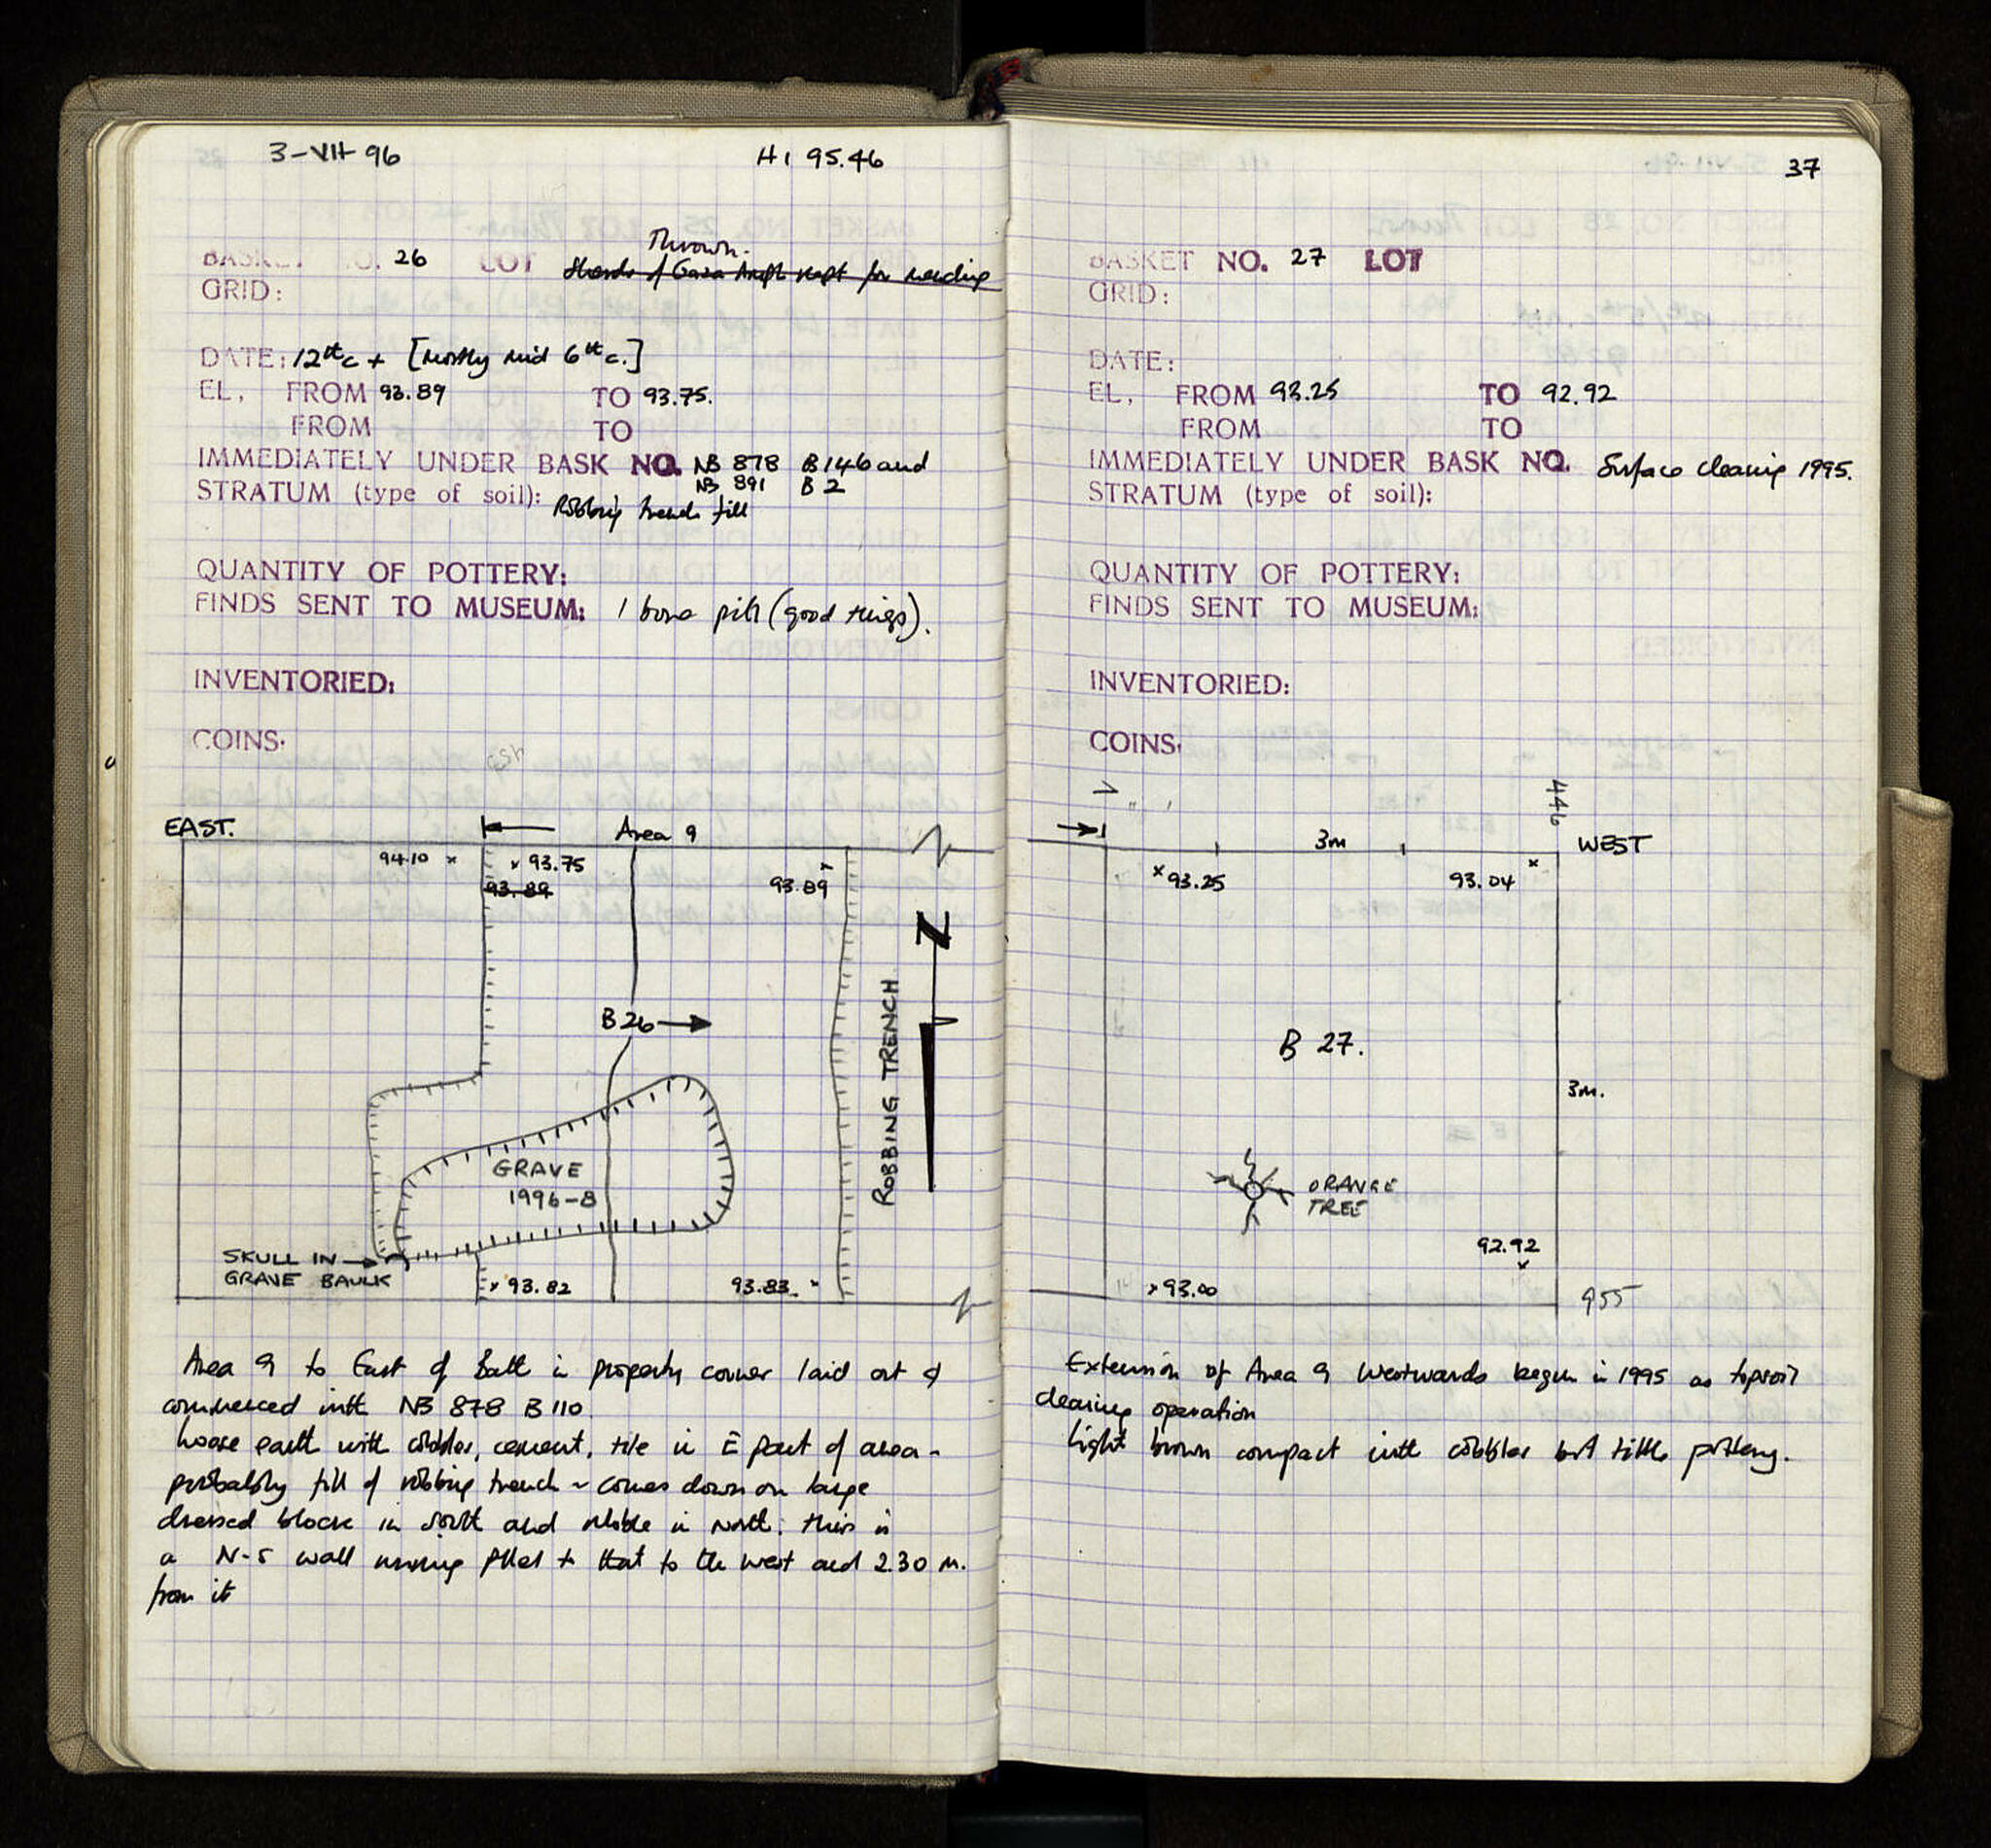 3-VII-96
HI 95.46
Thrown.
BASKET NO. 26 LOT Sherds of Gaza Amph kept for mending
GRID:
DATE: 12th c + [mostly mid 6th c.]
EL, FROM 93.89 TO 93.75.
FROM TO
IMMEDIATELY UNDER BASK NO. NB 878 B146 and
NB 891 B 2
STRATUM (type of soil): Robbing trench fill
QUANTITY OF POTTERY:
FINDS SENT TO MUSEUM: 1 bone pin (good things).
INVENTORIED:
COINS.
EAST. Area 9
94.10 x x 93.75
93.89
93.89
N
B26
ROBBING TRENCH
GRAVE
1996-8
SKULL IN
GRAVE BAULK
x 93.82
93.83.
Area 9 to East of Batt in property corner laid out &
commenced with NB 878 B110.
Loose earth with cobbles, cement, tile in E part of area -
probably fill of robbing trench - comes down on large
dressed blocks in south and rubble in north. This is
a N-S wall running //lel to that to the west and 2.30 m.
from it
37
BASKET NO. 27 LOT
GRID:
DATE:
EL, FROM 93.25 TO 92.92
FROM TO
IMMEDIATELY UNDER BASK NO. Surface clearing 1995.
STRATUM (type of soil):
QUANTITY OF POTTERY:
FINDS SENT TO MUSEUM:
INVENTORIED:
COINS.
446
3m WEST
x 93.25
93.04 x
B 27.
3m.
ORANGE
TREE
92.92
x
x 93.00
955
Extension of Area 9 Westwards begun in 1995 as topsoil
clearing operation
Light brown compact with cobbles but little pottery.